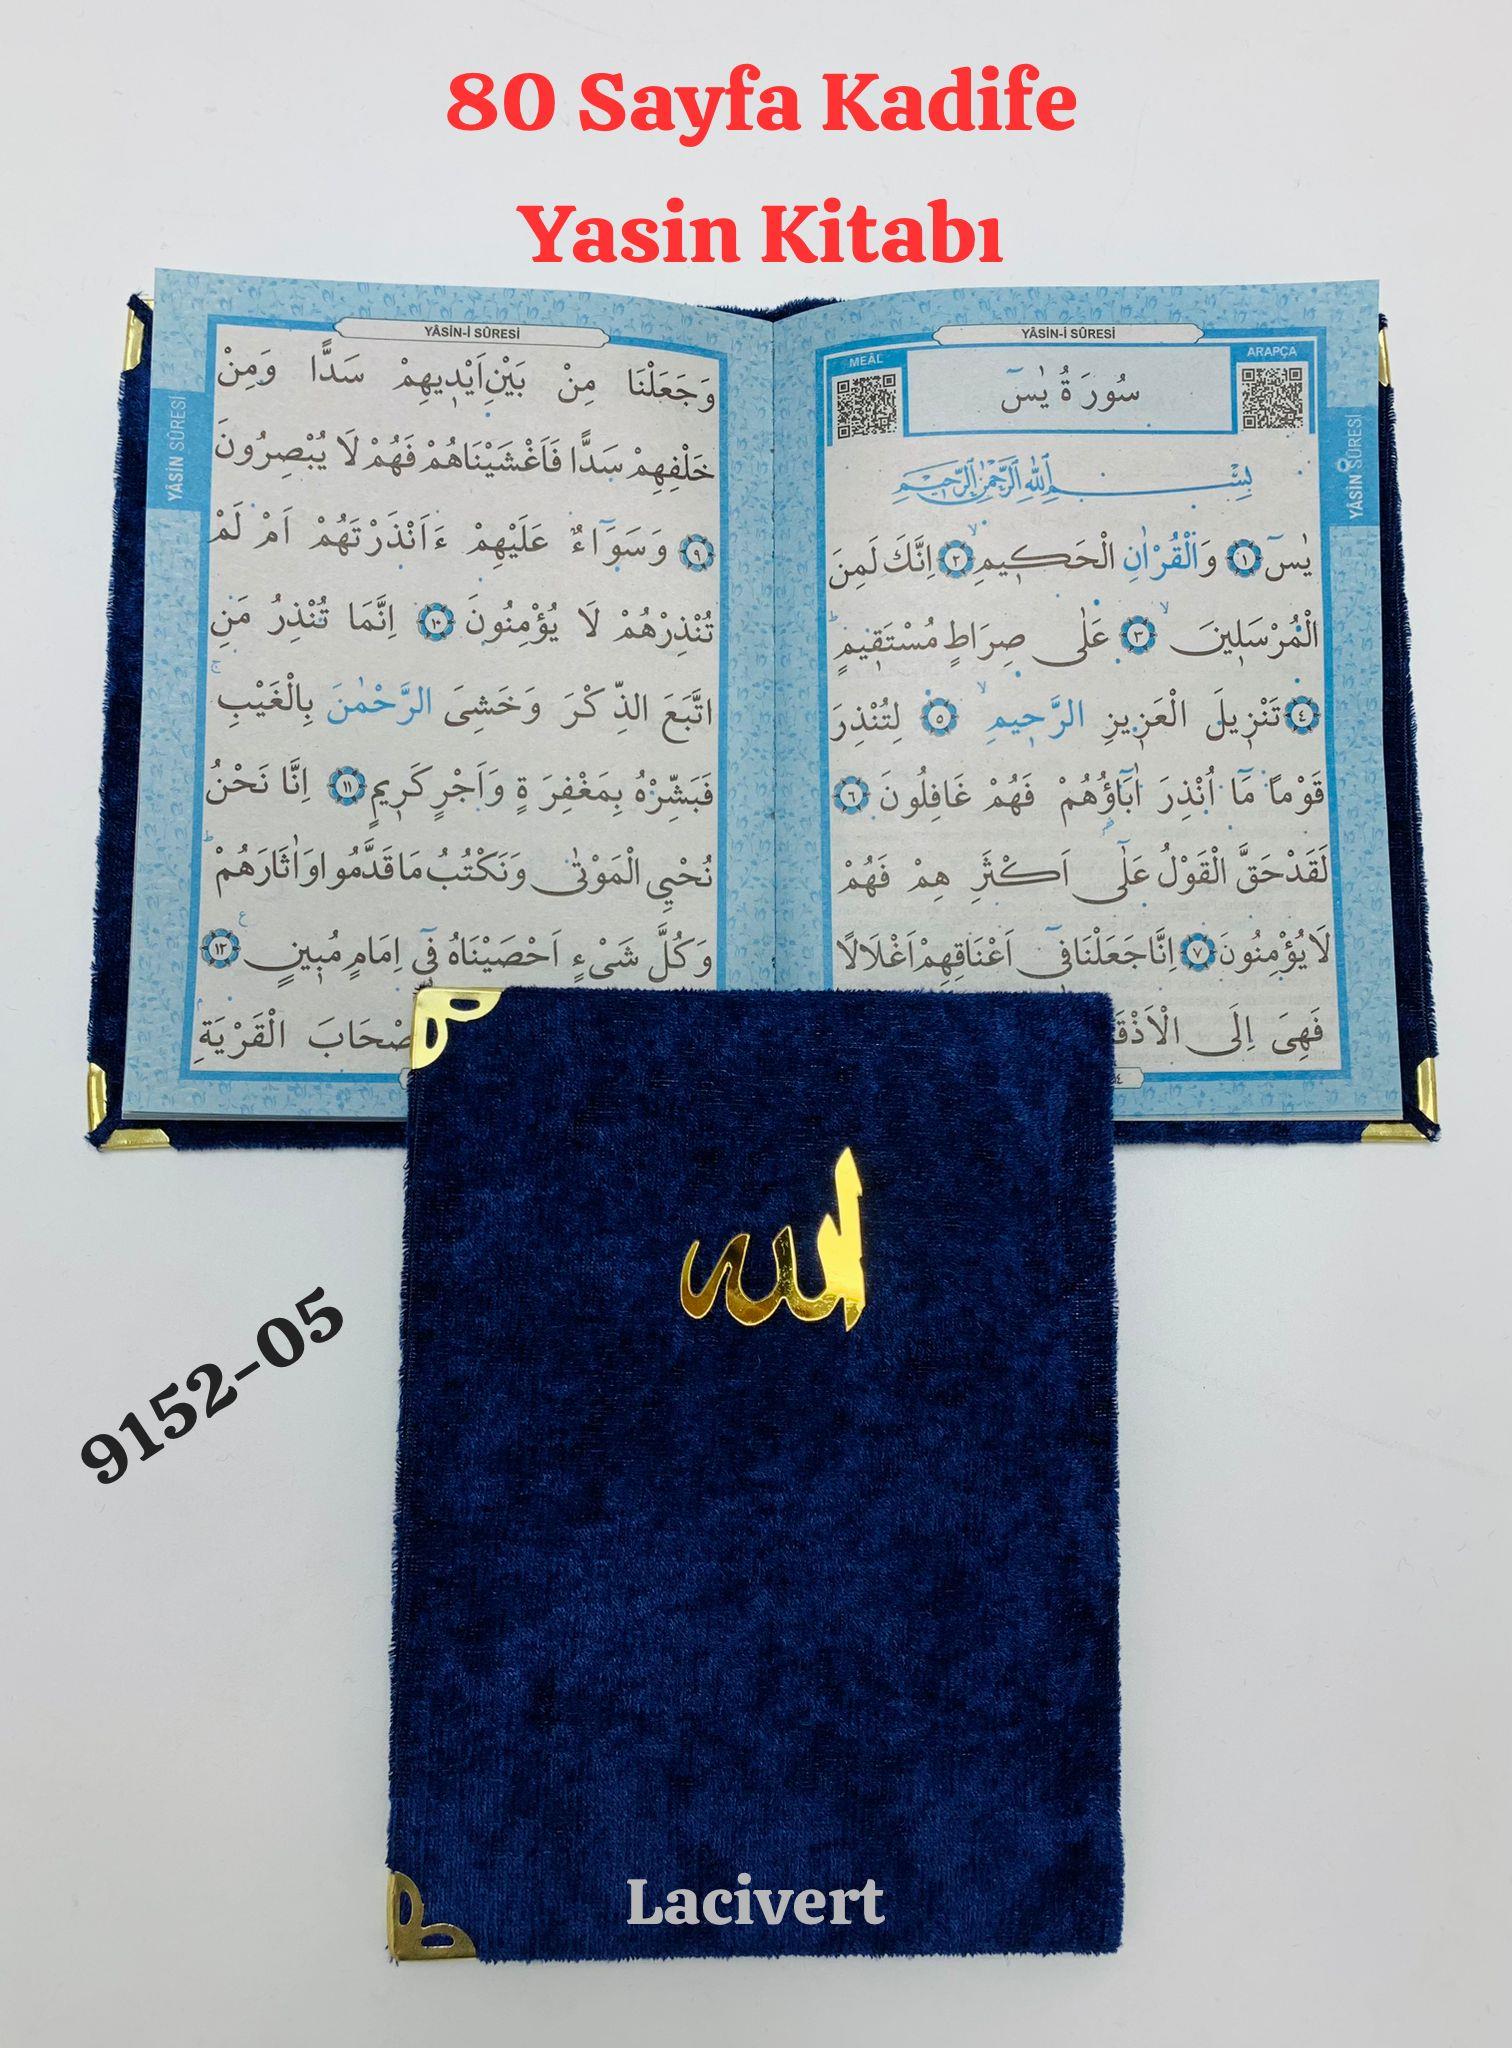 80 Sayfa Kadife
Yasin Kitabı
YÂSİN-İ SÛRESİ
MEÂL
ARAPÇA
سُورَةُ يٰسٓ
YÂSİN SÛRESİ
بِسْمِ اللّٰهِ الرَّحْمٰنِ الرَّحٖيمِ
يٰسٓ ١ وَالْقُرْاٰنِ الْحَكٖيمِ ٢ اِنَّكَ لَمِنَ
الْمُرْسَلٖينَ ٣ عَلٰى صِرَاطٍ مُسْتَقٖيمٍ
٤ تَنْزٖيلَ الْعَزٖيزِ الرَّحٖيمِ ٥ لِتُنْذِرَ
قَوْمًا مَٓا اُنْذِرَ اٰبَٓاؤُهُمْ فَهُمْ غَافِلُونَ ٦
لَقَدْ حَقَّ الْقَوْلُ عَلٰٓى اَكْثَرِ هِمْ فَهُمْ
لَا يُؤْمِنُونَ ٧ اِنَّا جَعَلْنَا فٖٓى اَعْنَاقِهِمْ اَغْلَالًا
فَهِىَ اِلَى الْاَذْقَ
YÂSİN-İ SÛRESİ
YÂSİN SÛRESİ
وَجَعَلْنَا مِنْ بَيْنِ اَيْدٖيهِمْ سَدًّا وَمِنْ
خَلْفِهِمْ سَدًّا فَاَغْشَيْنَاهُمْ فَهُمْ لَا يُبْصِرُونَ
٩ وَسَوَٓاءٌ عَلَيْهِمْ ءَاَنْذَرْتَهُمْ اَمْ لَمْ
تُنْذِرْهُمْ لَا يُؤْمِنُونَ ١٠ اِنَّمَا تُنْذِرُ مَنِ
اتَّبَعَ الذِّكْرَ وَخَشِىَ الرَّحْمٰنَ بِالْغَيْبِ
فَبَشِّرْهُ بِمَغْفِرَةٍ وَاَجْرٍ كَرٖيمٍ ١١ اِنَّا نَحْنُ
نُحْيِي الْمَوْتٰى وَنَكْتُبُ مَا قَدَّمُوا وَاٰثَارَهُمْ
وَكُلَّ شَىْءٍ اَحْصَيْنَاهُ فٖٓى اِمَامٍ مُبٖينٍ ١٢
صْحَابَ الْقَرْيَةِ
الله
9152-05
Lacivert